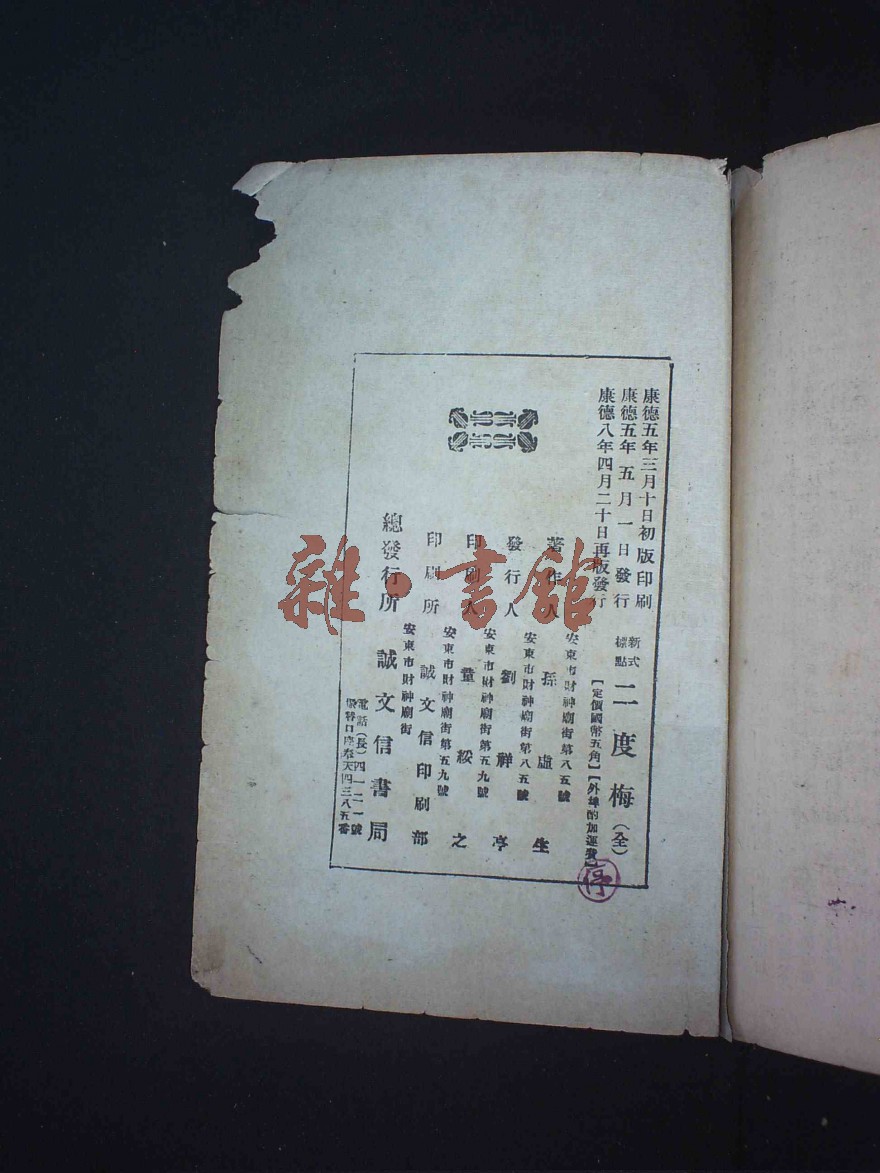 康德五年三月十日初版印刷
康德五年五月一日發行
康德八年四月二十日再版發行
新式標點 二度梅（全）
【定價國幣五角】【外埠酌加運費】
著作人 孫虛生
安東市財神廟街第八五號
發行人 劉祥亭
安東市財神廟街第八五號
印刷人 童綏之
安東市財神廟街第五九號
印刷所 誠文信印刷部
安東市財神廟街第五九號
總發行所 誠文信書局
安東市財神廟街
電話（長）四一二一號
振替口座奉天四三八五番
停
雜·書館